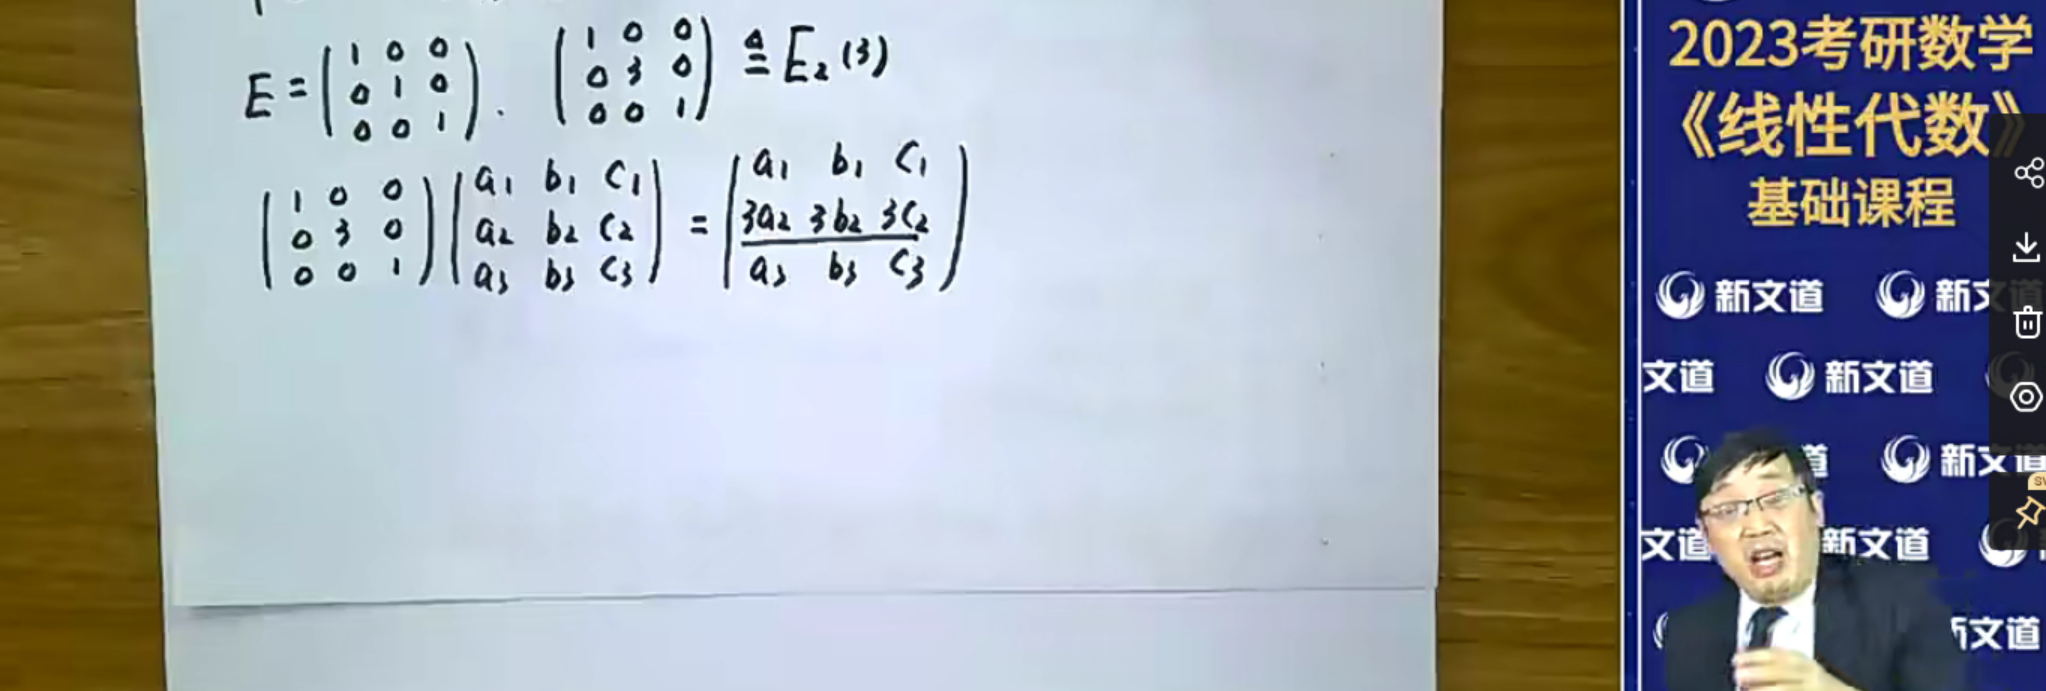 E = ( 1 0 0
0 1 0
0 0 1 ) . ( 1 0 0
0 3 0
0 0 1 ) ≜ E₂(3)
( 1 0 0
0 3 0
0 0 1 ) ( a₁ b₁ c₁
a₂ b₂ c₂
a₃ b₃ c₃ ) = ( a₁ b₁ c₁
3a₂ 3b₂ 3c₂
a₃ b₃ c₃ )
2023考研数学
《线性代数》
基础课程
新文道 新文道
文道 新文道
道 新文道
文道 新文道
新文道